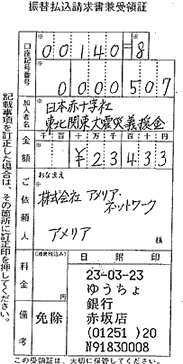 振替払込請求書兼受領証
口座記号番号
00140=8
0000507
加入者名
日本赤十字社
東北関東大震災義援金
金額
千百十万千百十円
¥23433
ご依頼人
おなまえ
株式会社 アメリア・
ネットワーク
アメリア
様
料金
(消費税込み)
円
備考
免除
日附印
23-03-23
ゆうちょ
銀行
赤坂店
(01251)20
N91830008
記載事項を訂正した場合は、その箇所に訂正印を押してください。
この受領証は、大切に保管してください。